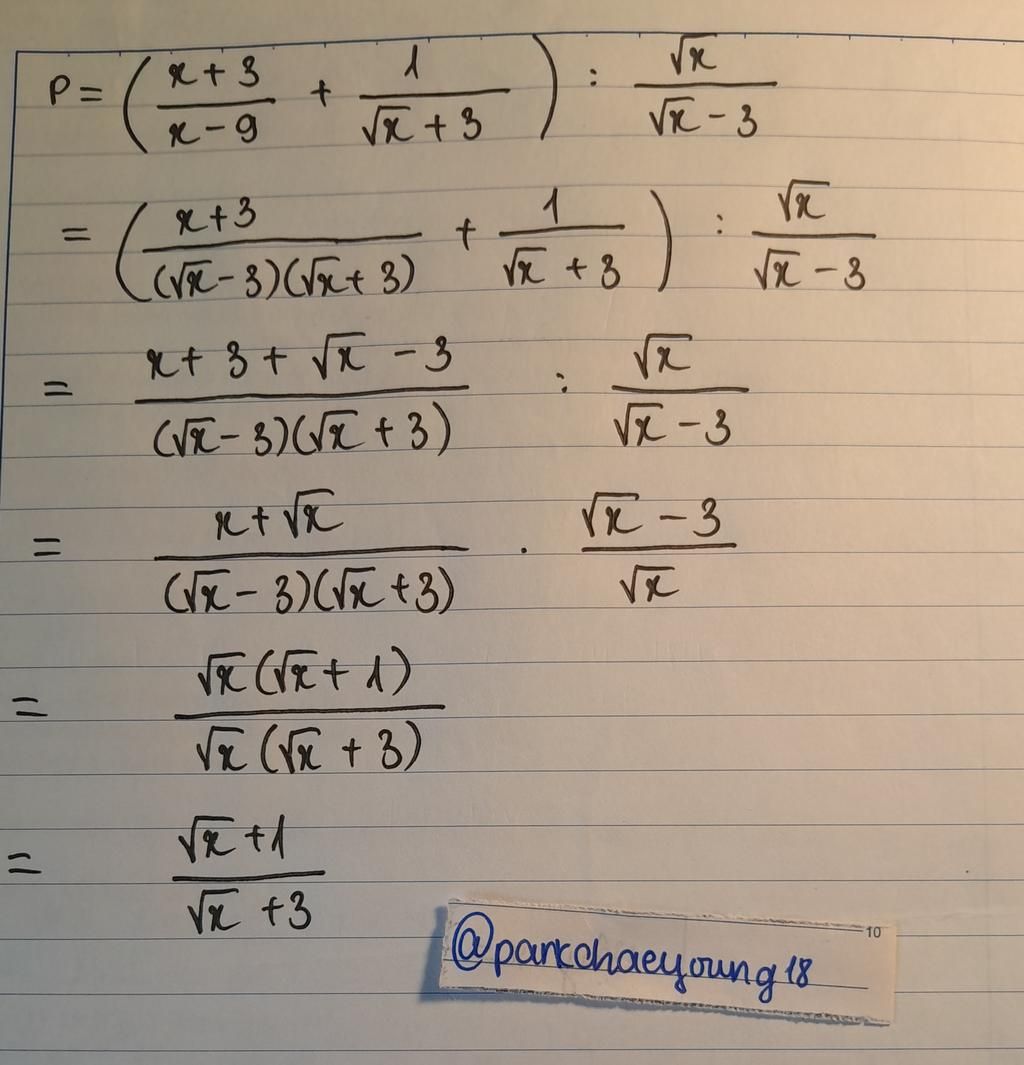 P = ( (x + 3)/(x - 9) + 1/(√x + 3) ) : √x/(√x - 3)
= ( (x + 3)/((√x - 3)(√x + 3)) + 1/(√x + 3) ) : √x/(√x - 3)
= (x + 3 + √x - 3)/((√x - 3)(√x + 3)) : √x/(√x - 3)
= (x + √x)/((√x - 3)(√x + 3)) . (√x - 3)/√x
= √x(√x + 1)/(√x(√x + 3))
= (√x + 1)/(√x + 3)
10
@parkchaeyoung18